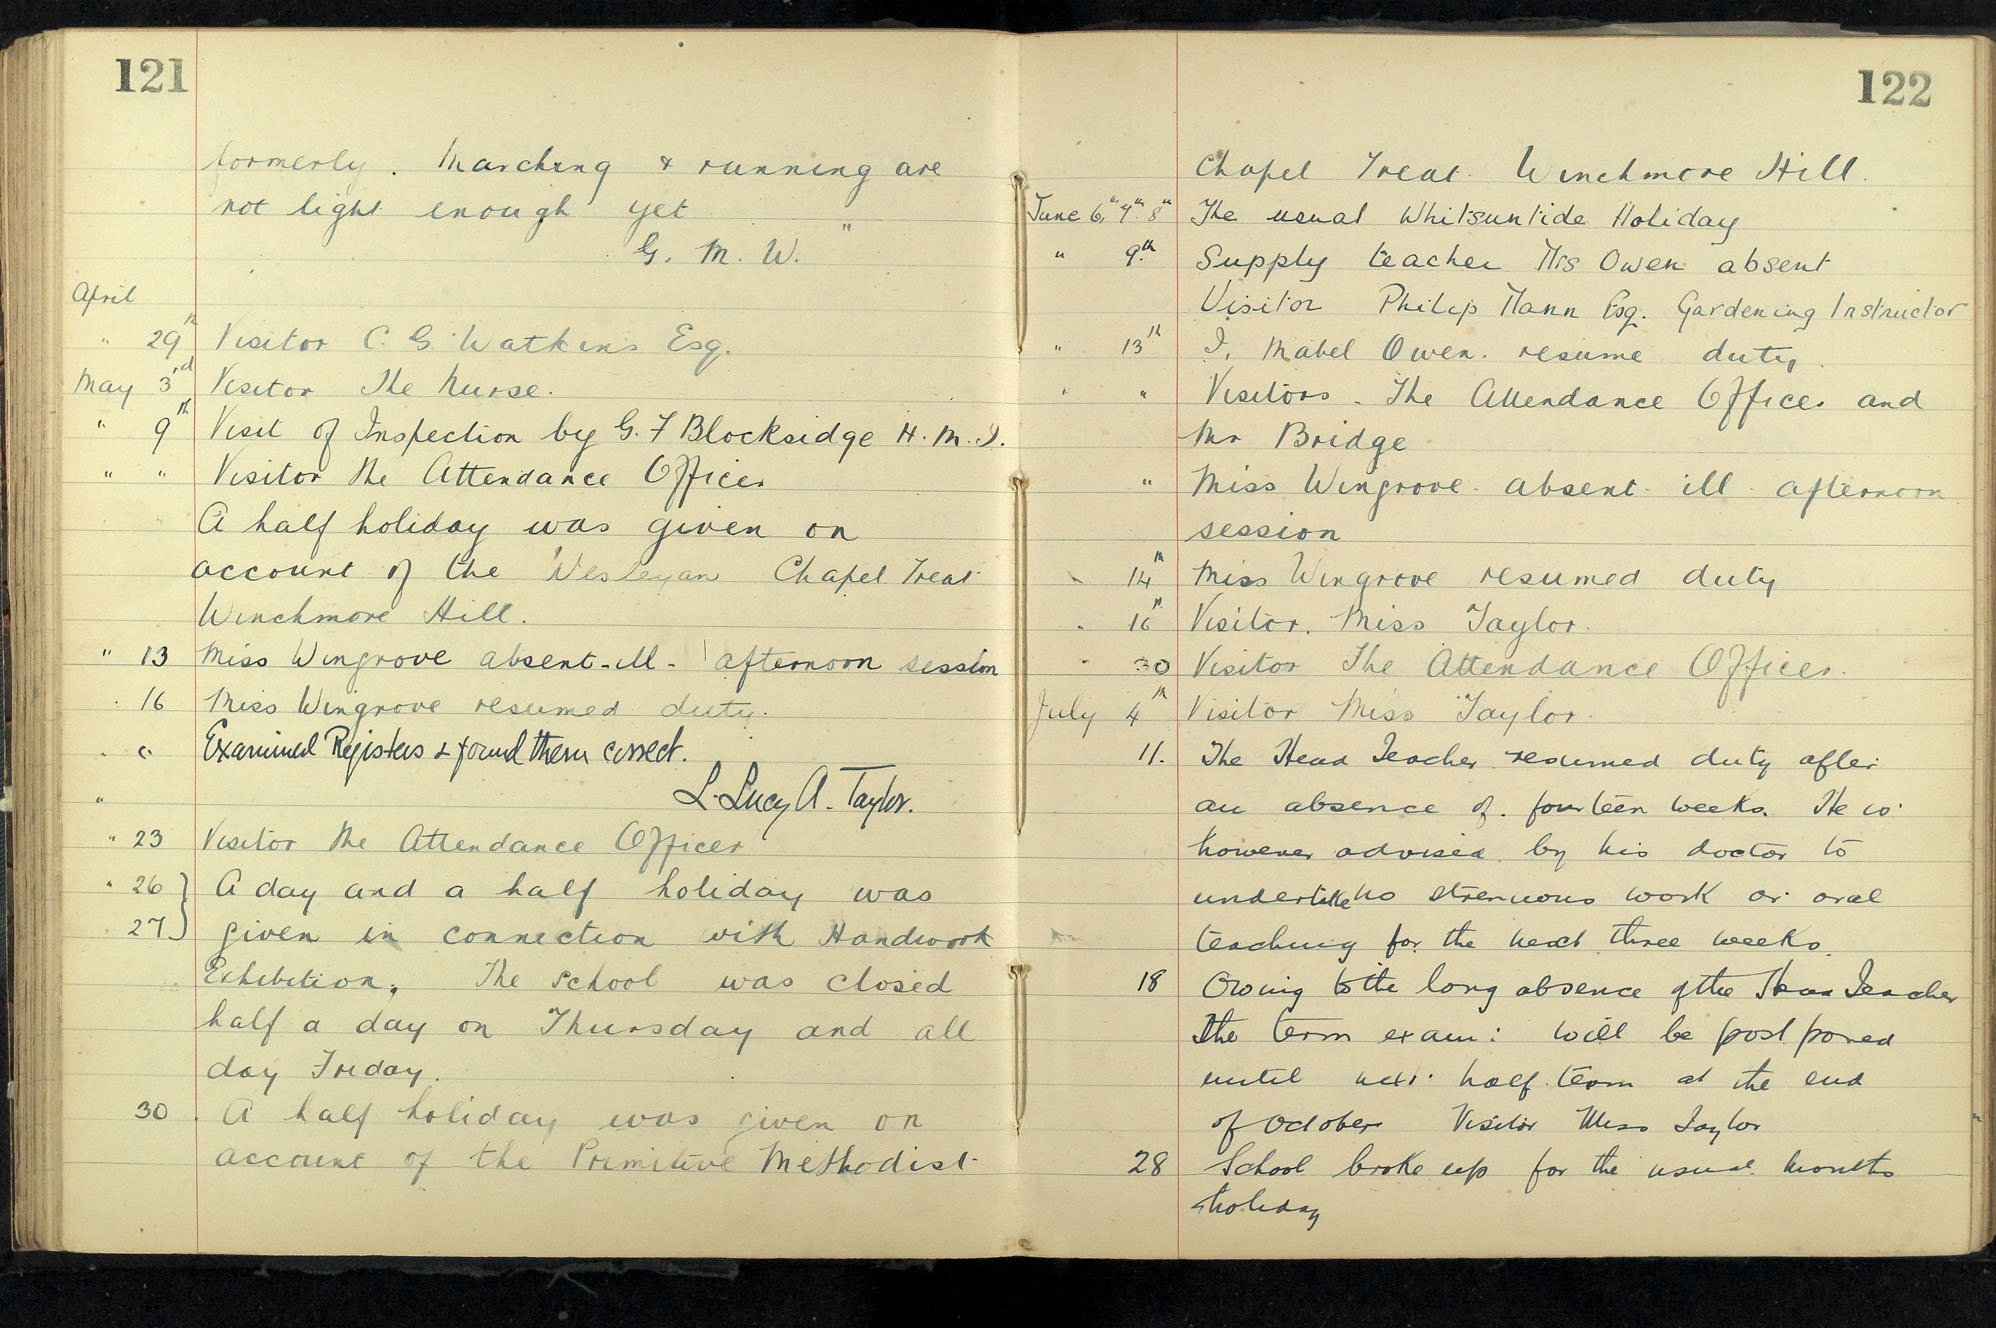 121
formerly. Marching & running are
not light enough yet "
G. M. W.
April
" 29th Visitor C. G. Watkins Esq.
May 3rd Visitor The Nurse.
" 9th Visit of Inspection by G. F Blocksidge H. M. I.
" " Visitor the Attendance Officer
A half holiday was given on
account of the Wesleyan Chapel Treat
Winchmore Hill.
" 13 Miss Wingrove absent - ill - afternoon session
" 16 Miss Wingrove resumed duty.
" " Examined Registers & found them correct.
" L. Lucy A. Taylor.
" 23 Visitor the Attendance Officer
" 26 } A day and a half holiday was
27 } given in connection with Handwork
Exhibition. The School was closed
half a day on Thursday and all
day Friday.
30 A half holiday was given on
account of the Primitive Methodist
122
Chapel Treat. Winchmore Hill.
June 6th 7th 8th The usual Whitsuntide Holiday
" 9th Supply teacher Mrs Owen absent
Visitor Philip Mann Esq. Gardening Instructor
" 13th I, Mabel Owen. resume duty.
" " Visitors - The Attendance Officer and
Mr Bridge
" Miss Wingrove - absent - ill - afternoon
session
" 14th Miss Wingrove resumed duty
" 16th Visitor. Miss Taylor.
" 30 Visitor The Attendance Officer.
July 4th Visitor Miss Taylor.
11. The Head Teacher resumed duty after
an absence of fourteen weeks. He is
however advised by his doctor to
undertake no strenuous work or oral
teaching for the next three weeks.
18 Owing to the long absence of the Head Teacher
the term exam: will be postponed
until next half term at the end
of October Visitor Miss Taylor
28 School broke up for the usual months
holiday